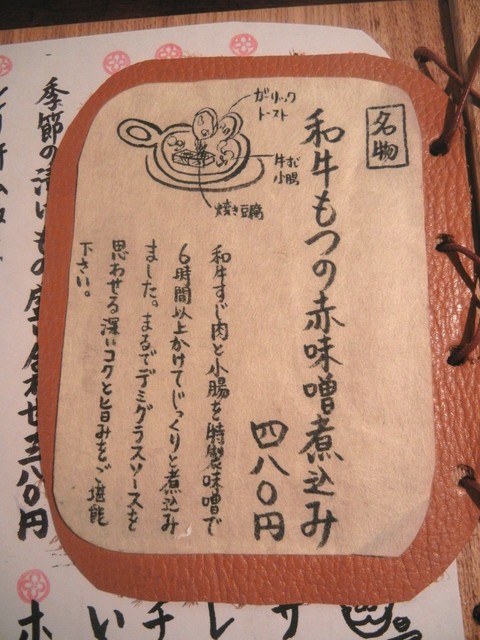 名物
和牛もつの赤味噌煮込み
四八〇円
ガーリック
トースト
牛すじ
小腸
焼き豆腐
和牛すじ肉と小腸を特製味噌で
6時間以上かけてじっくりと煮込み
ました。まるでデミグラスソースを
思わせる深いコクと旨みをご堪能
下さい。
季節の漬けもの盛り合わせ 三八〇円